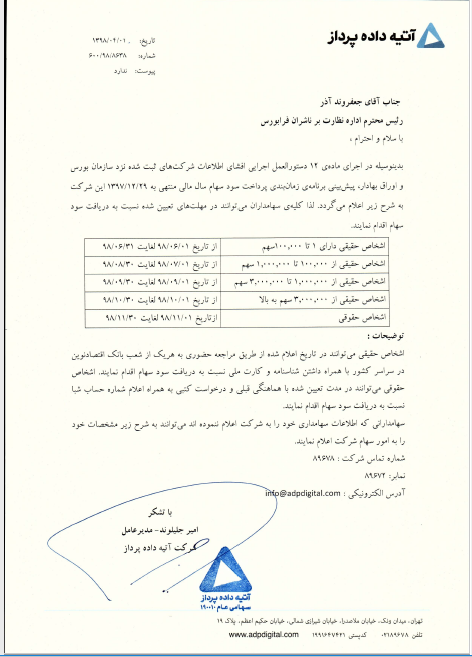 آتیه داده پرداز
تاریخ: ۱۳۹۸/۰۴/۰۱
شماره: ۶۰۰/۹۸/۸۶۳۸
پیوست: ندارد
جناب آقای جعفروند آذر
رئیس محترم اداره نظارت بر ناشران فرابورس
با سلام و احترام ،
بدینوسیله در اجرای ماده‌ی ۱۲ دستورالعمل اجرایی افشای اطلاعات شرکت‌های ثبت شده نزد سازمان بورس
و اوراق بهادار، پیش‌بینی برنامه‌ی زمان‌بندی پرداخت سود سهام سال مالی منتهی به ۱۳۹۷/۱۲/۲۹ این شرکت
به شرح زیر اعلام می‌گردد. لذا کلیه‌ی سهامداران می‌توانند در مهلت‌های تعیین شده نسبت به دریافت سود
سهام اقدام نمایند.
اشخاص حقیقی دارای ۱ تا ۱۰۰,۰۰۰سهم از تاریخ ۹۸/۰۶/۰۱ لغایت ۹۸/۰۶/۳۱
اشخاص حقیقی از ۱۰۰,۰۰۰ تا ۱,۰۰۰,۰۰۰ سهم از تاریخ ۹۸/۰۷/۰۱ لغایت ۹۸/۰۸/۳۰
اشخاص حقیقی از ۱,۰۰۰,۰۰۰ تا ۳,۰۰۰,۰۰۰ سهم از تاریخ ۹۸/۰۹/۰۱ لغایت ۹۸/۰۹/۳۰
اشخاص حقیقی از ۳,۰۰۰,۰۰۰ سهم به بالا از تاریخ ۹۸/۱۰/۰۱ لغایت ۹۸/۱۰/۳۰
اشخاص حقوقی ازتاریخ ۹۸/۱۱/۰۱ لغایت ۹۸/۱۱/۳۰
توضیحات :
اشخاص حقیقی می‌توانند در تاریخ اعلام شده از طریق مراجعه حضوری به هریک از شعب بانک اقتصادنوین
در سراسر کشور با همراه داشتن شناسنامه و کارت ملی نسبت به دریافت سود سهام اقدام نمایند. اشخاص
حقوقی می‌توانند در مدت تعیین شده با هماهنگی قبلی و درخواست کتبی به همراه اعلام شماره حساب شبا
نسبت به دریافت سود سهام اقدام نمایند.
سهامدارانی که اطلاعات سهامداری خود را به شرکت اعلام ننموده اند می‌توانند به شرح زیر مشخصات خود
را به امور سهام شرکت اعلام نمایند.
شماره تماس شرکت : ۸۹۶۷۸
نمابر: ۸۹۶۷۲
آدرس الکترونیکی : info@adpdigital.com
با تشکر
امیر جلیلوند- مدیرعامل
شرکت آتیه داده پرداز
آتیه داده پرداز
سهامی عام ۱۹۰۰۱۰
تهران، میدان ونک، خیابان ملاصدرا، خیابان شیرازی شمالی، خیابان حکیم اعظم، پلاک ۱۹
تلفن ۰۲۱۸۹۶۷۸ کدپستی ۱۹۹۱۶۴۷۴۴۱ www.adpdigital.com